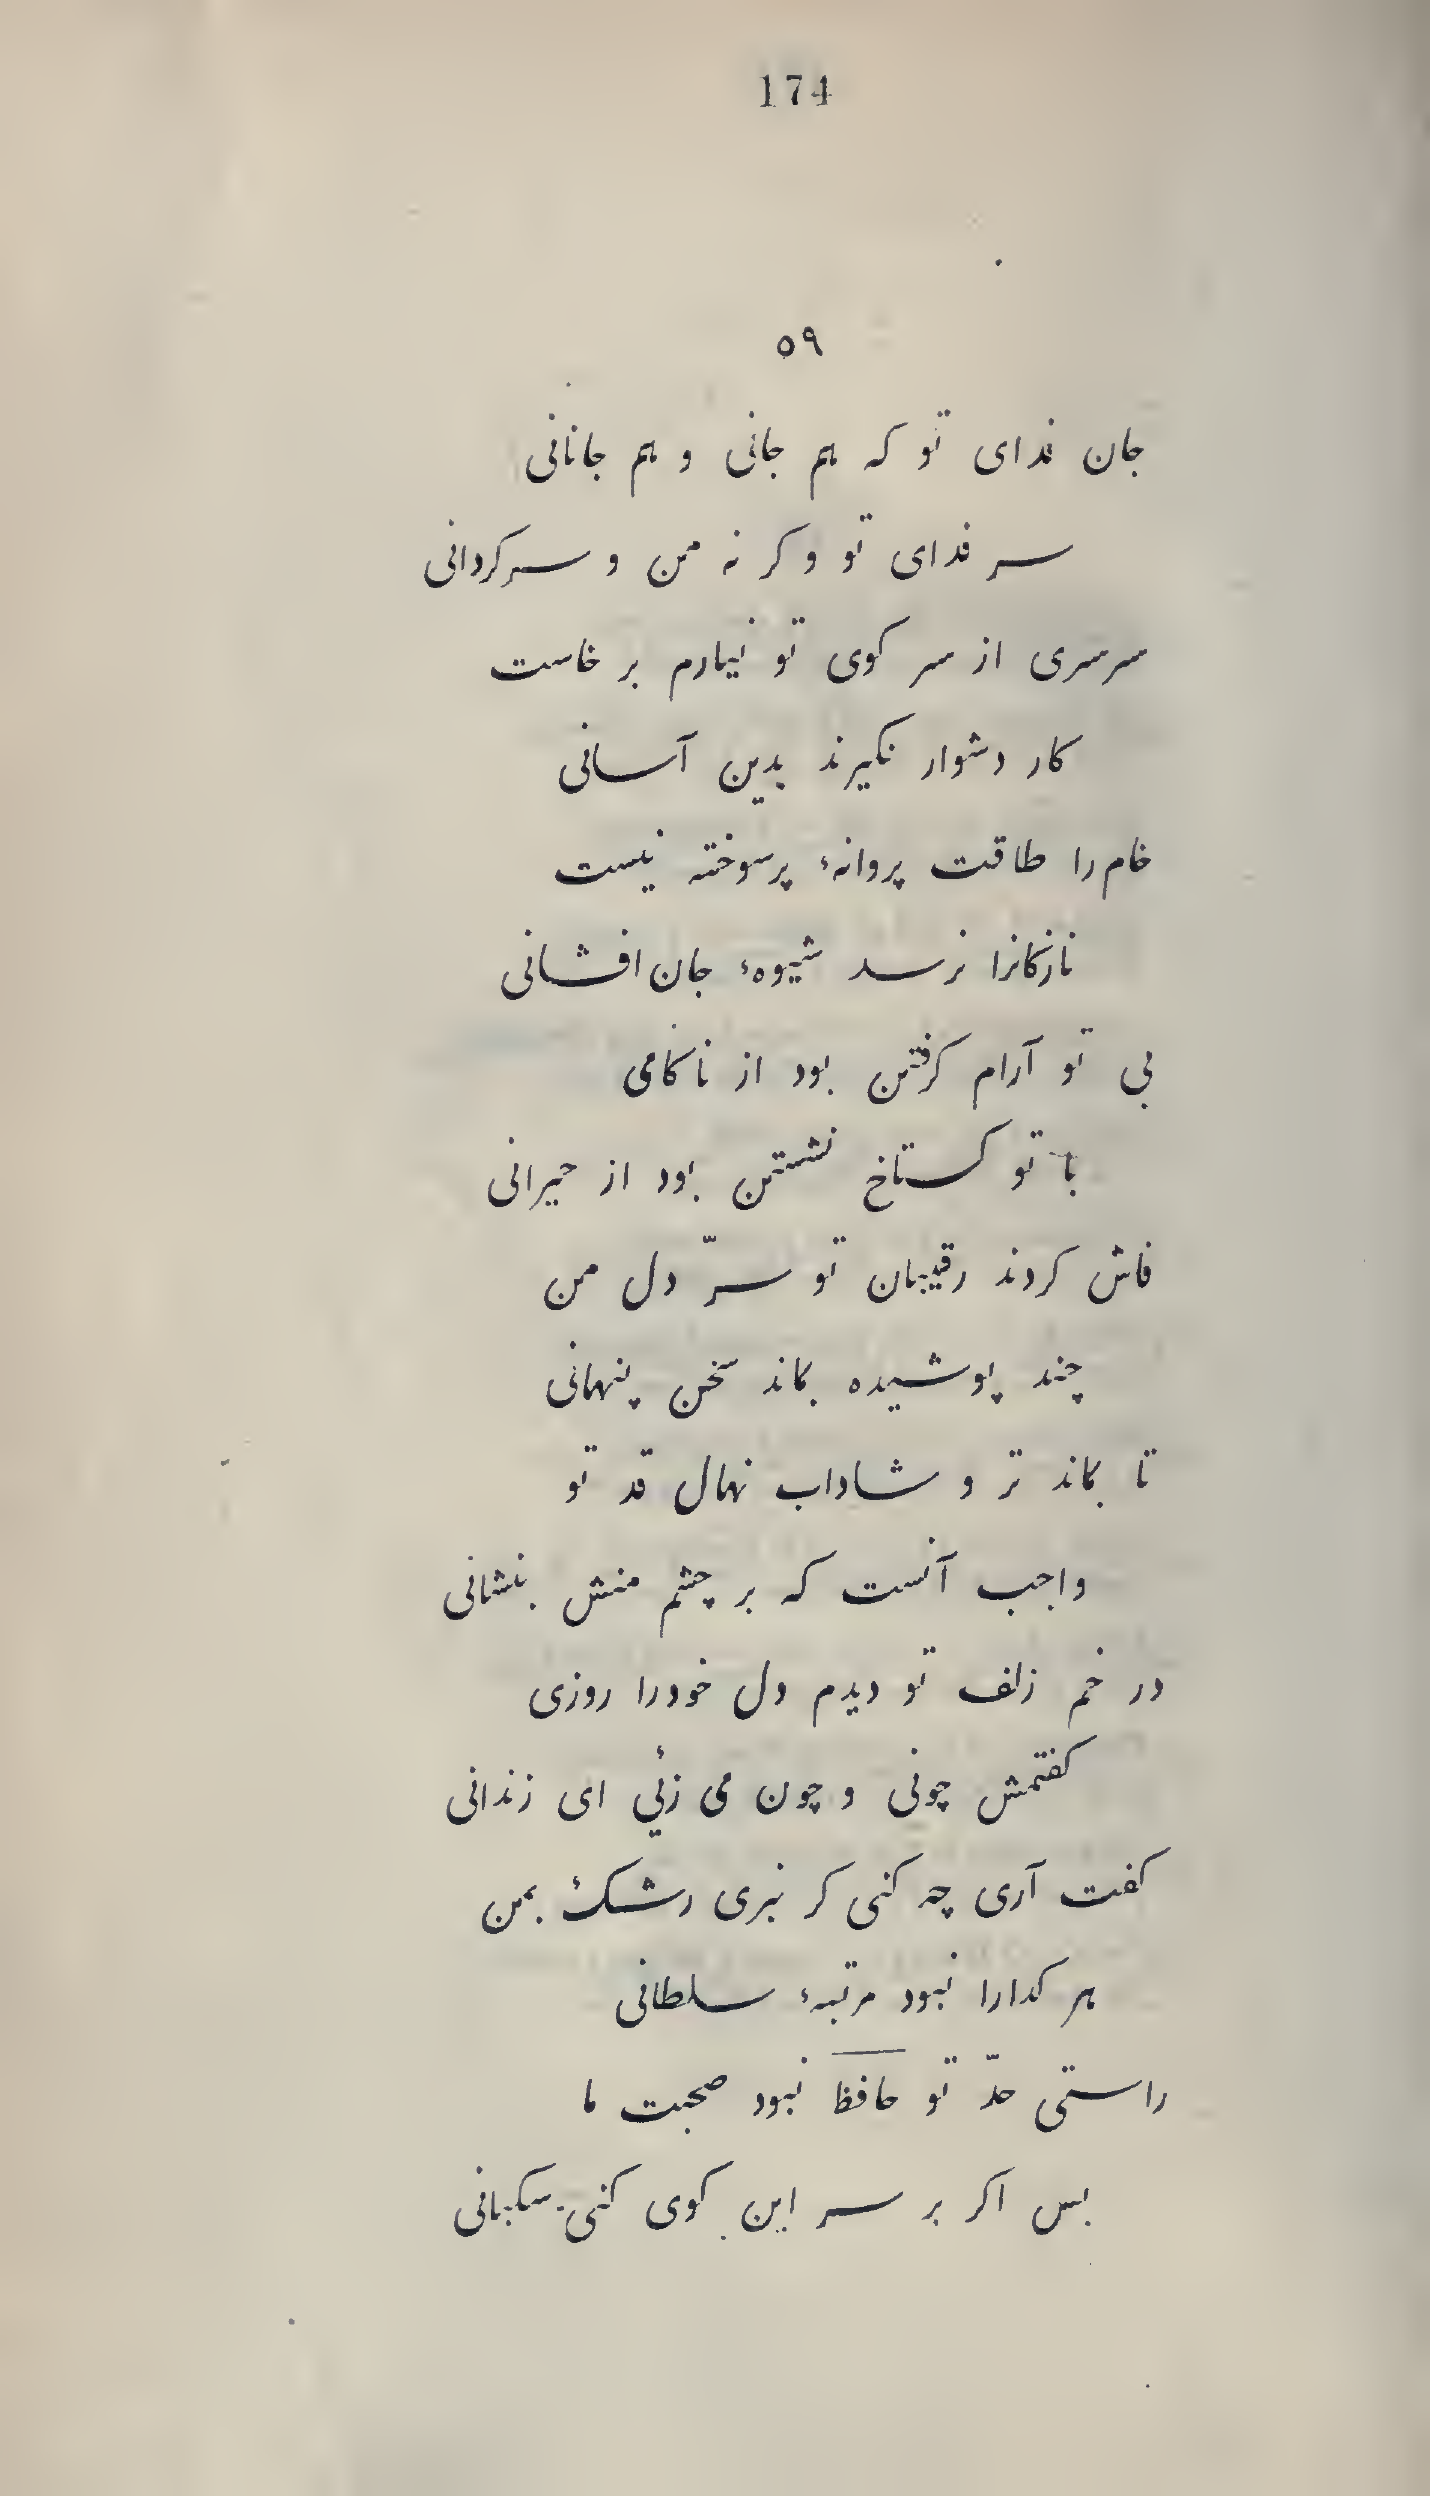 174
۵۹
جان فدای تو که هم جانی و هم جانانی
سر فدای تو وکر نه من و سرکردانی
سرسری از سر کوی تو نیارم بر خاست
کار دشوار نکیرند بدین آسانی
خام را طاقت پروانهٔ پرسوخته نیست
نازکانرا نرسد شیوهٔ جان افشانی
بی تو آرام کرفتن بود از ناکامی
با تو کستاخ نشستن بود از حیرانی
فاش کردند رقیبان تو سرّ دل من
چند پوشیده بماند سخن پنهانی
تا بماند تر و شاداب نهال قد تو
واجب آنست که بر چشم منش بنشانی
در خم زلف تو دیدم دل خودرا روزی
کفتمش چونی و چون می زئی ای زندانی
کفت آری چه کنی کر نبری رشک بمن
هر کدارا نبود مرتبهٔ سلطانی
راستی حدّ تو حافظ نبود صحبت ما
بس اکر بر سر این کوی کنی سکبانی